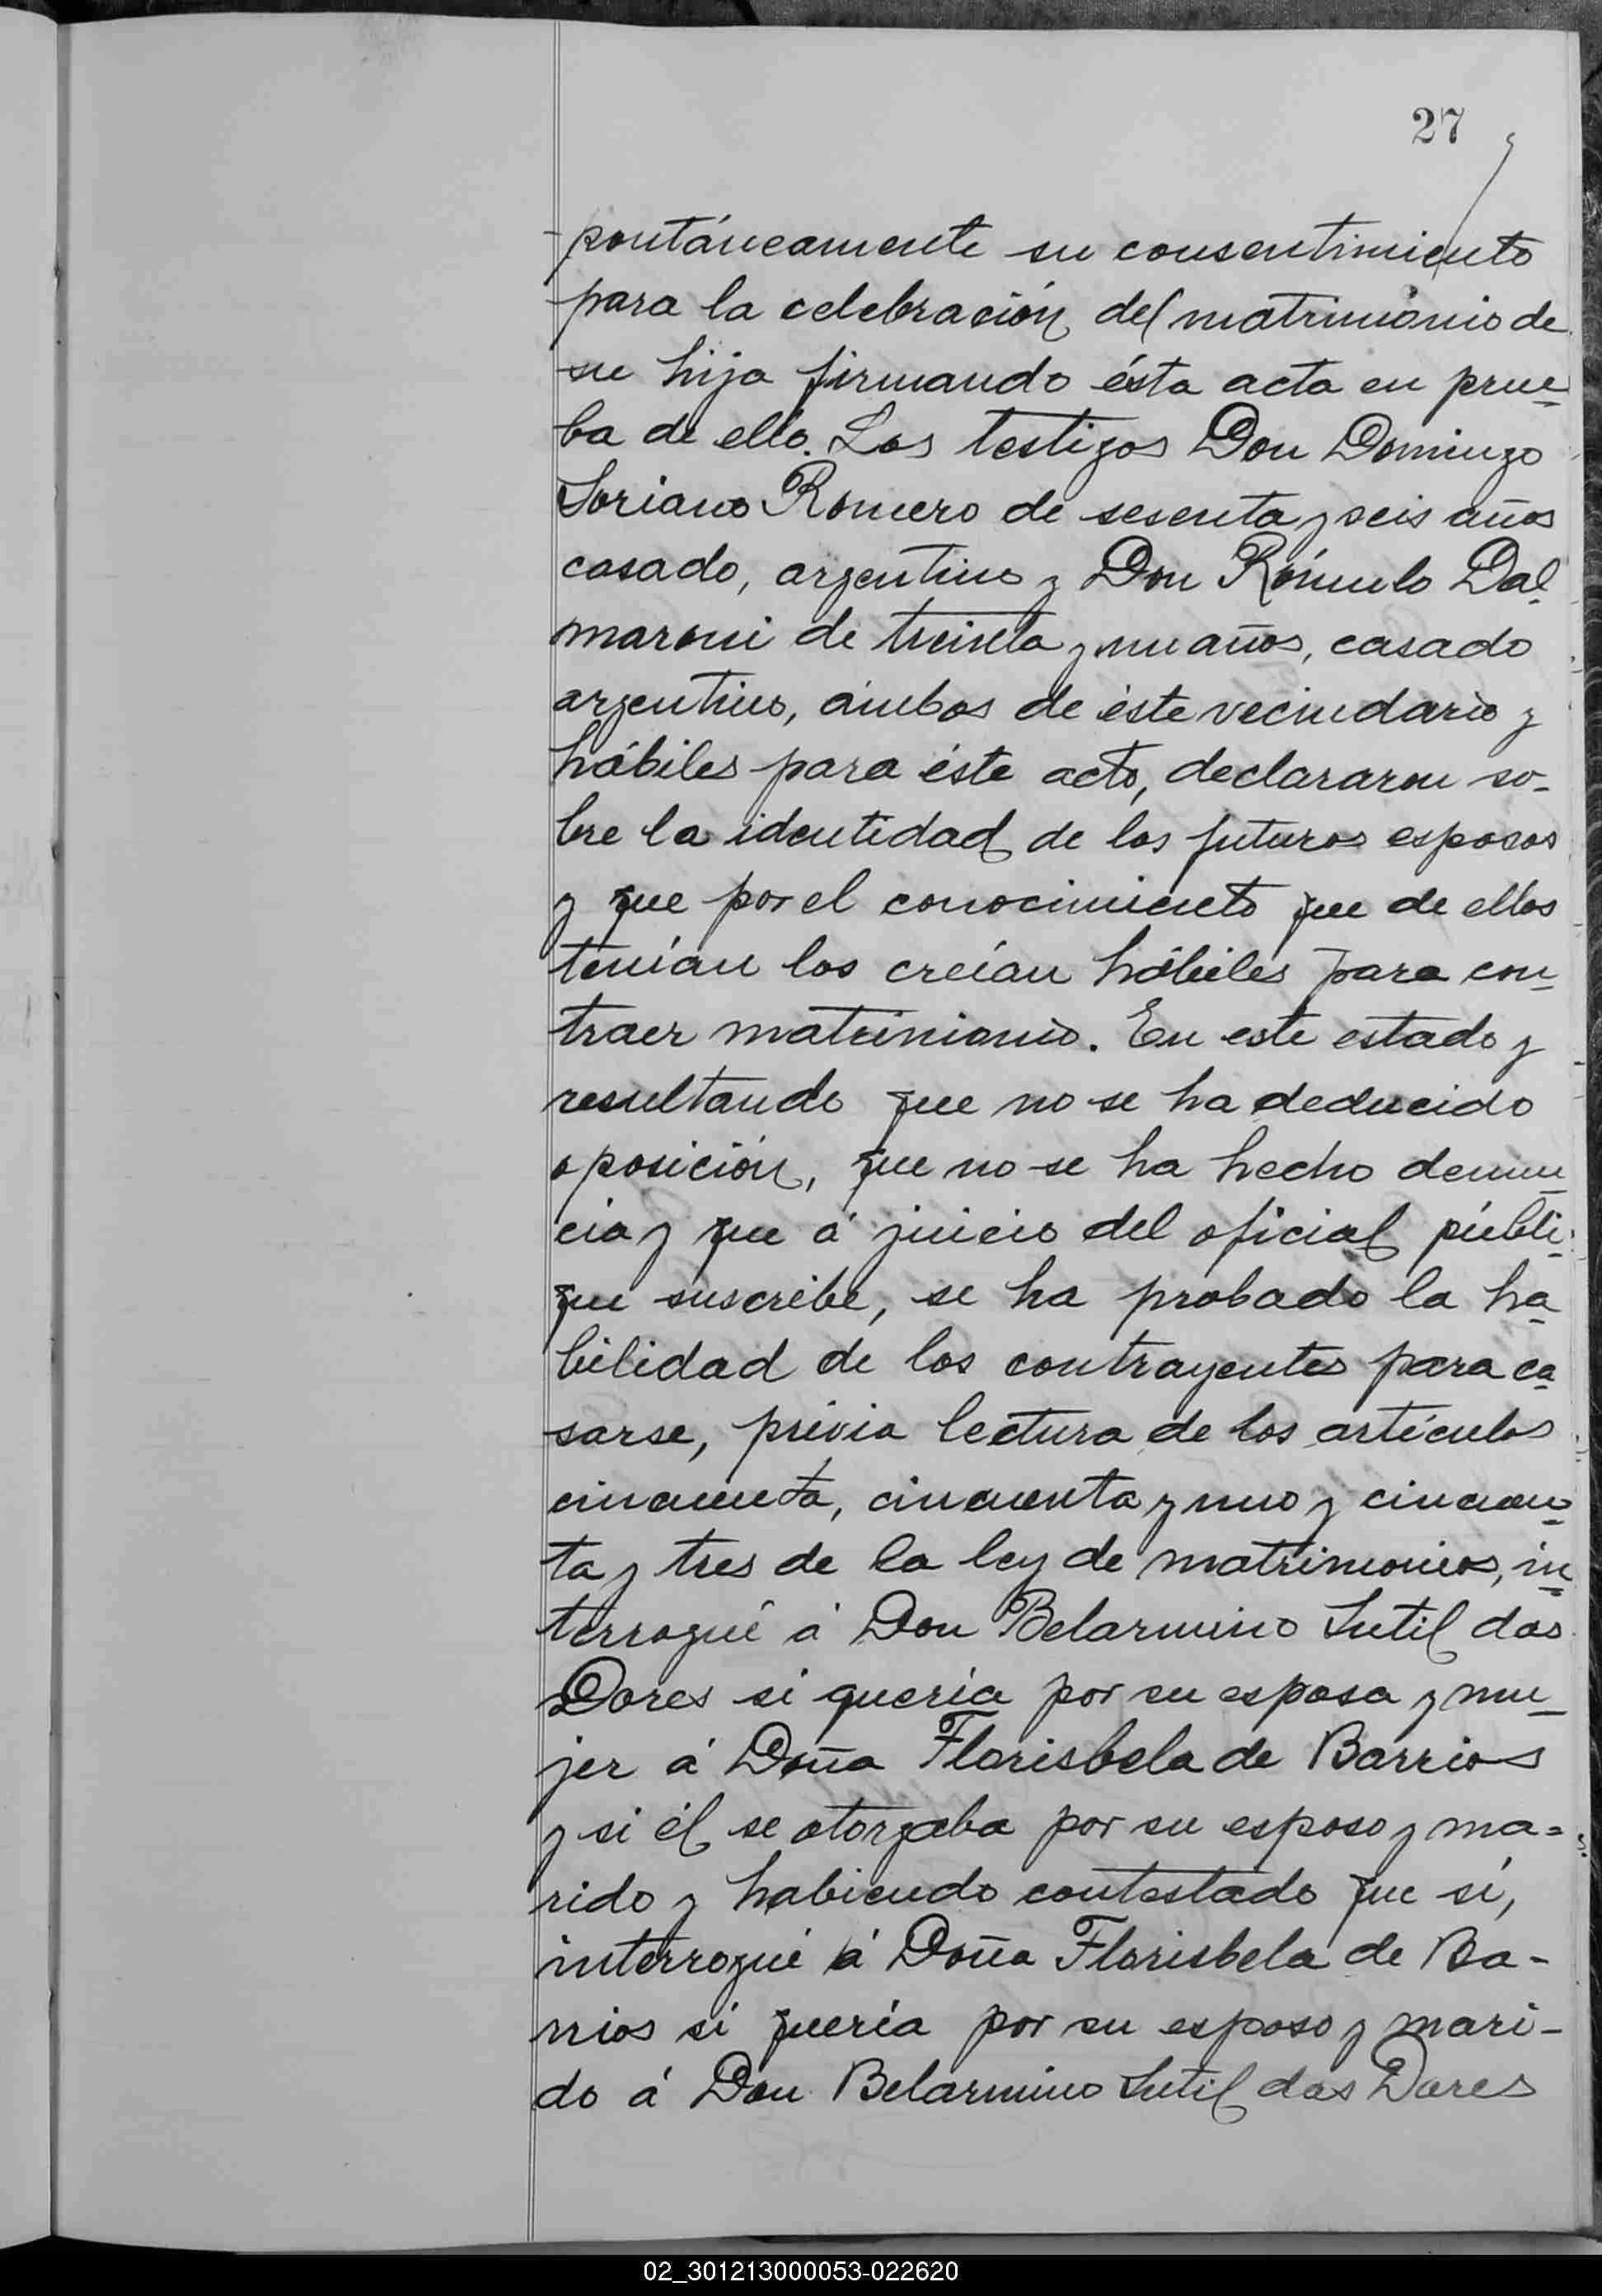 27
pontáneamente su consentimiento
para la celebración del matrimonio de
su hija firmando ésta acta en prue-
ba de ello. Los testigos Don Domingo
Soriano Romero de sesenta y seis años
casado, argentino y Don Rómulo Dal-
maroni de treinta y un años, casado
argentino, ámbos de éste vecindario y
hábiles para éste acto, declararon so-
bre la identidad de los futuros esposos
y que por el conocimiento que de ellos
tenían los creían hábiles para con-
traer matrimonio. En este estado y
resultando que no se ha deducido
oposición, que no se ha hecho denun-
cia y que á juicio del oficial públi-
que suscribe, se ha probado la ha-
bilidad de los contrayentes para ca-
sarse, prévia lectura de los artículos
cincuenta, cincuenta y uno y cincuen-
ta y tres de la ley de matrimonios, in-
terrogué á Don Belarmino Sutil das
Dores si quería por su esposa y mu-
jer á Doña Florisbela de Barrios
y si él se otorgaba por su esposo y ma-
rido y habiendo contestado que sí,
interrogué á Doña Florisbela de Ba-
rrios si quería por su esposo y mari-
do á Don Belarmino Sutil das Dores
02_301213000053-022620